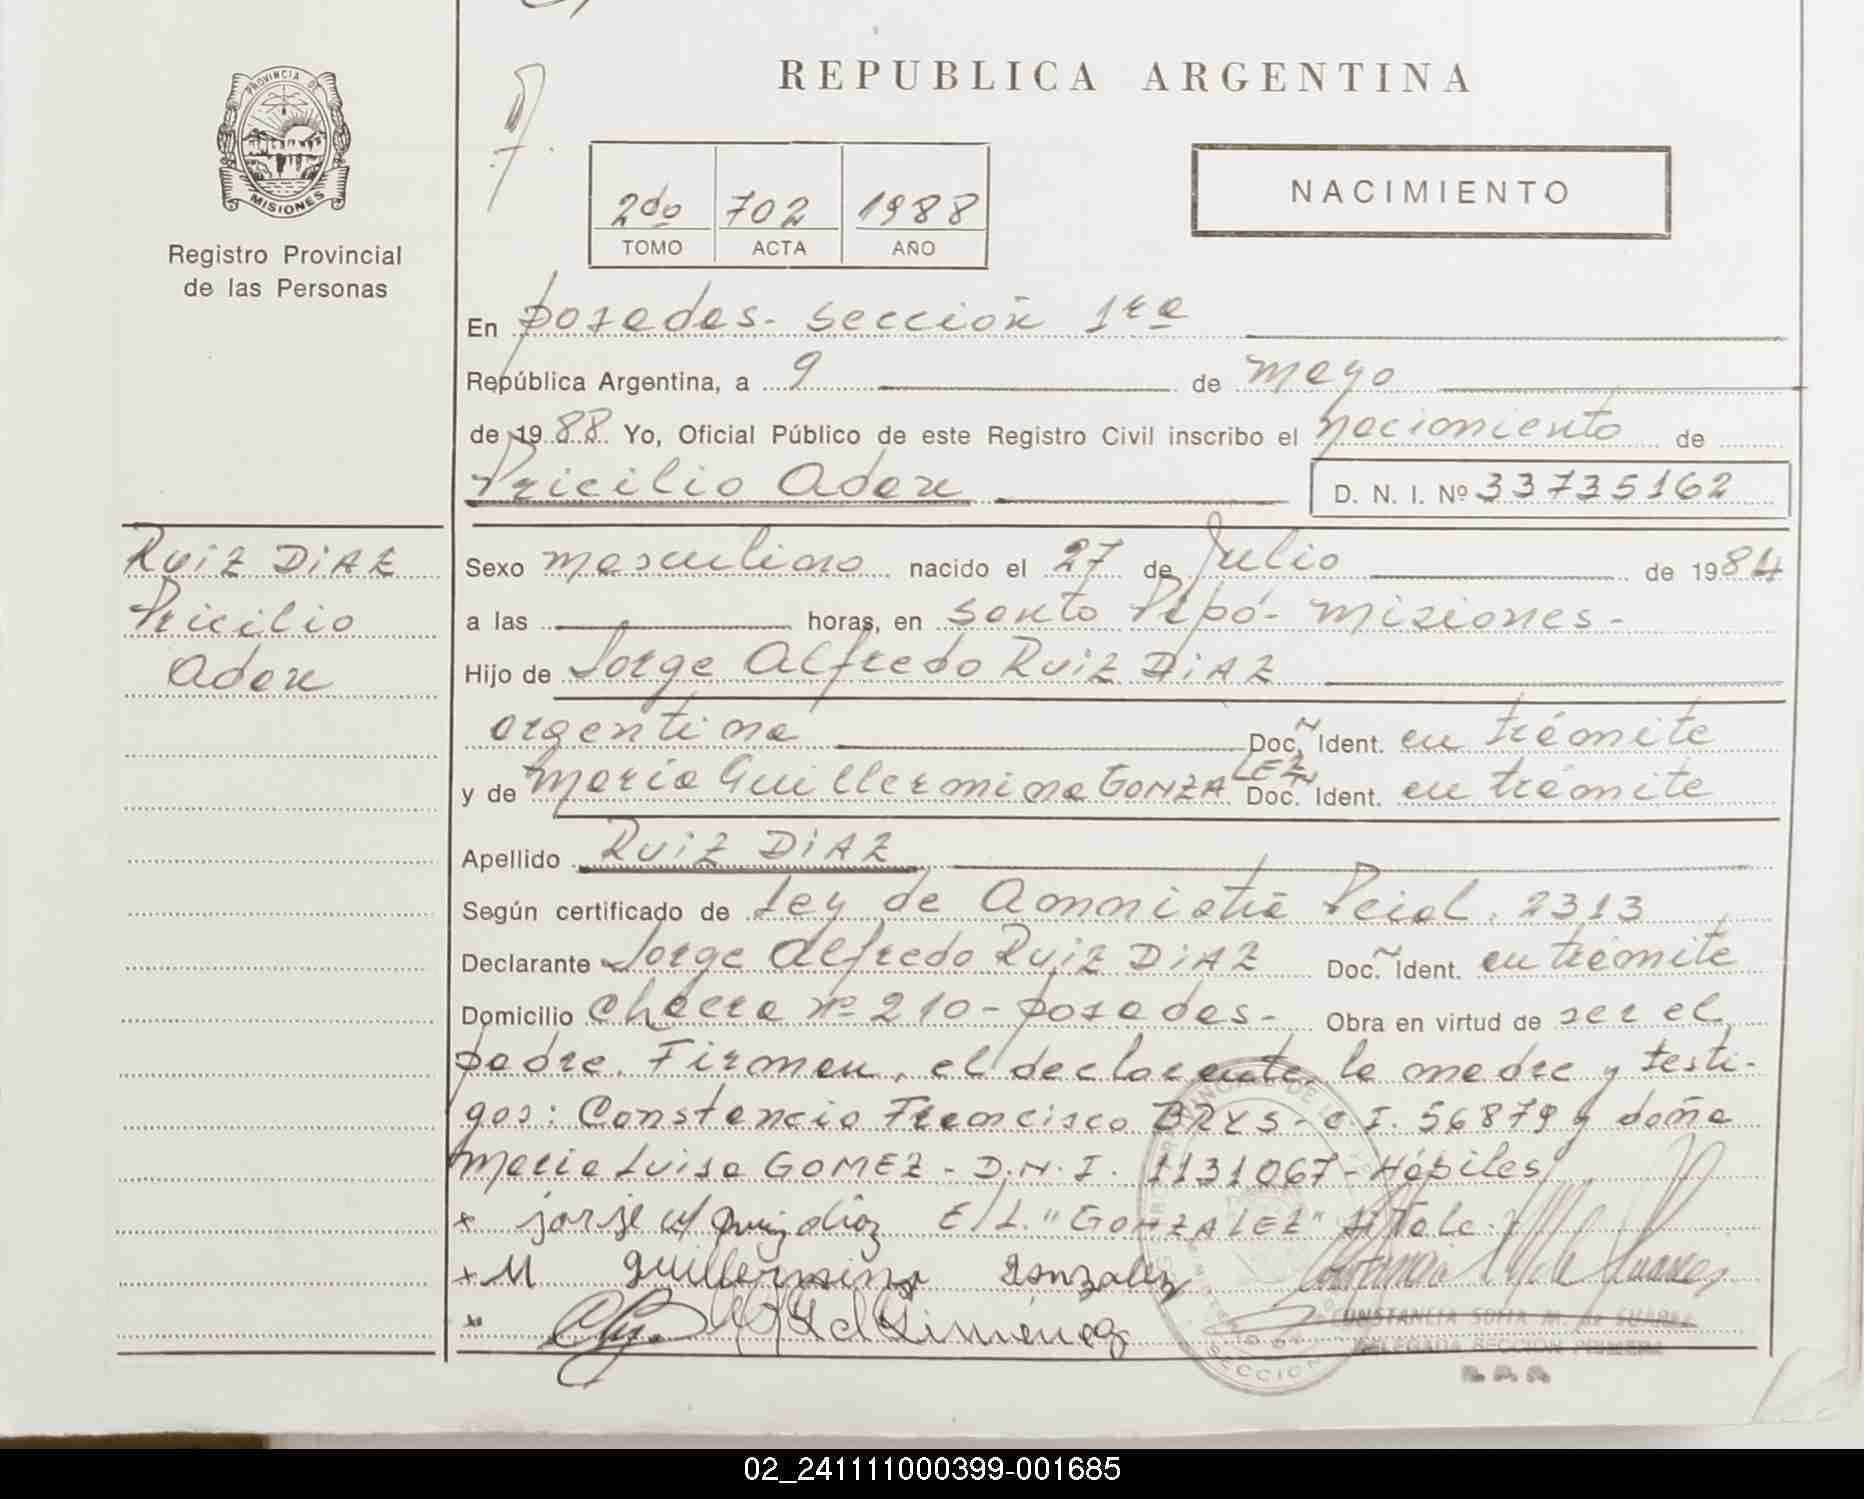 PROVINCIA DE
MISIONES
Registro Provincial
de las Personas
REPUBLICA ARGENTINA
2do 702 1988
TOMO ACTA AÑO
NACIMIENTO
En Posadas - Sección 1ra
República Argentina, a 9 de mayo
de 1988 Yo, Oficial Público de este Registro Civil inscribo el nacimiento de
Pricilio Adan
D. N. I. Nº 33735162
RUIZ DIAZ
Pricilio
Adan
Sexo masculino nacido el 27 de Julio de 1984
a las horas, en Santo Pipó - Misiones -
Hijo de Jorge Alfredo RUIZ DIAZ
argentina Doc. Ident. en trámite
y de María Guillermina GONZALEZ Doc. Ident. en trámite
Apellido RUIZ DIAZ
Según certificado de Ley de Amnistía Pcial. 2313
Declarante Jorge Alfredo RUIZ DIAZ Doc. Ident. en trámite
Domicilio Chacra Nº 210 - Posadas - Obra en virtud de ser el
padre. Firman, el declarante, la madre y testi-
gos: Constancio Francisco BRYS - C.I. 56879 y doña
Maria Luisa GOMEZ - D.N.I. 1131067 - Hábiles
x jorje ruiz diaz E/L. "GONZALEZ" Vale.
x M guillermina gonzalez
x
CONSTANCIA SOFIA M. de SUAREZ
DELEGADA SECCION PRIMERA
R. P. P.
02_241111000399-001685